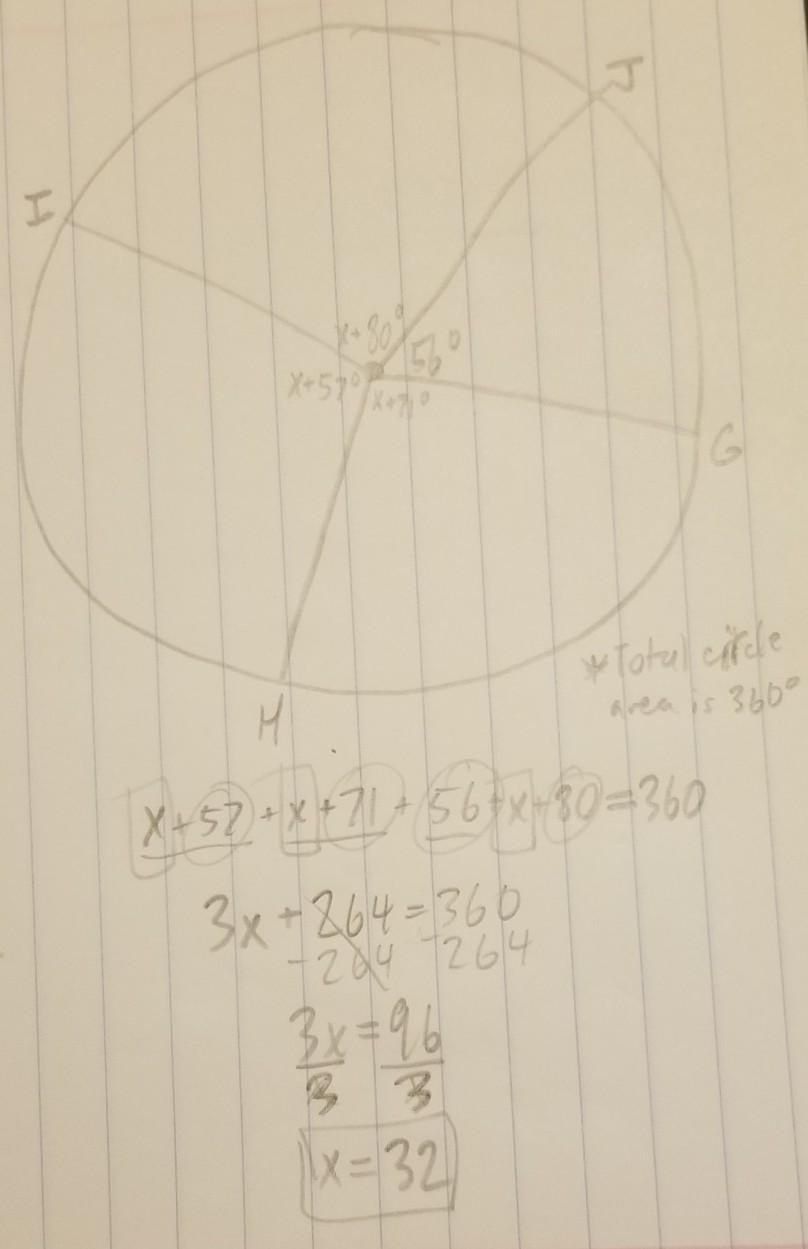 J
I
x+80°
56°
x+57°
x+71°
G
H
*Total circle
area is 360°
x+57+x+71+56+x+80=360
3x+264=360
-264 -264
3x=96
3 3
x=32